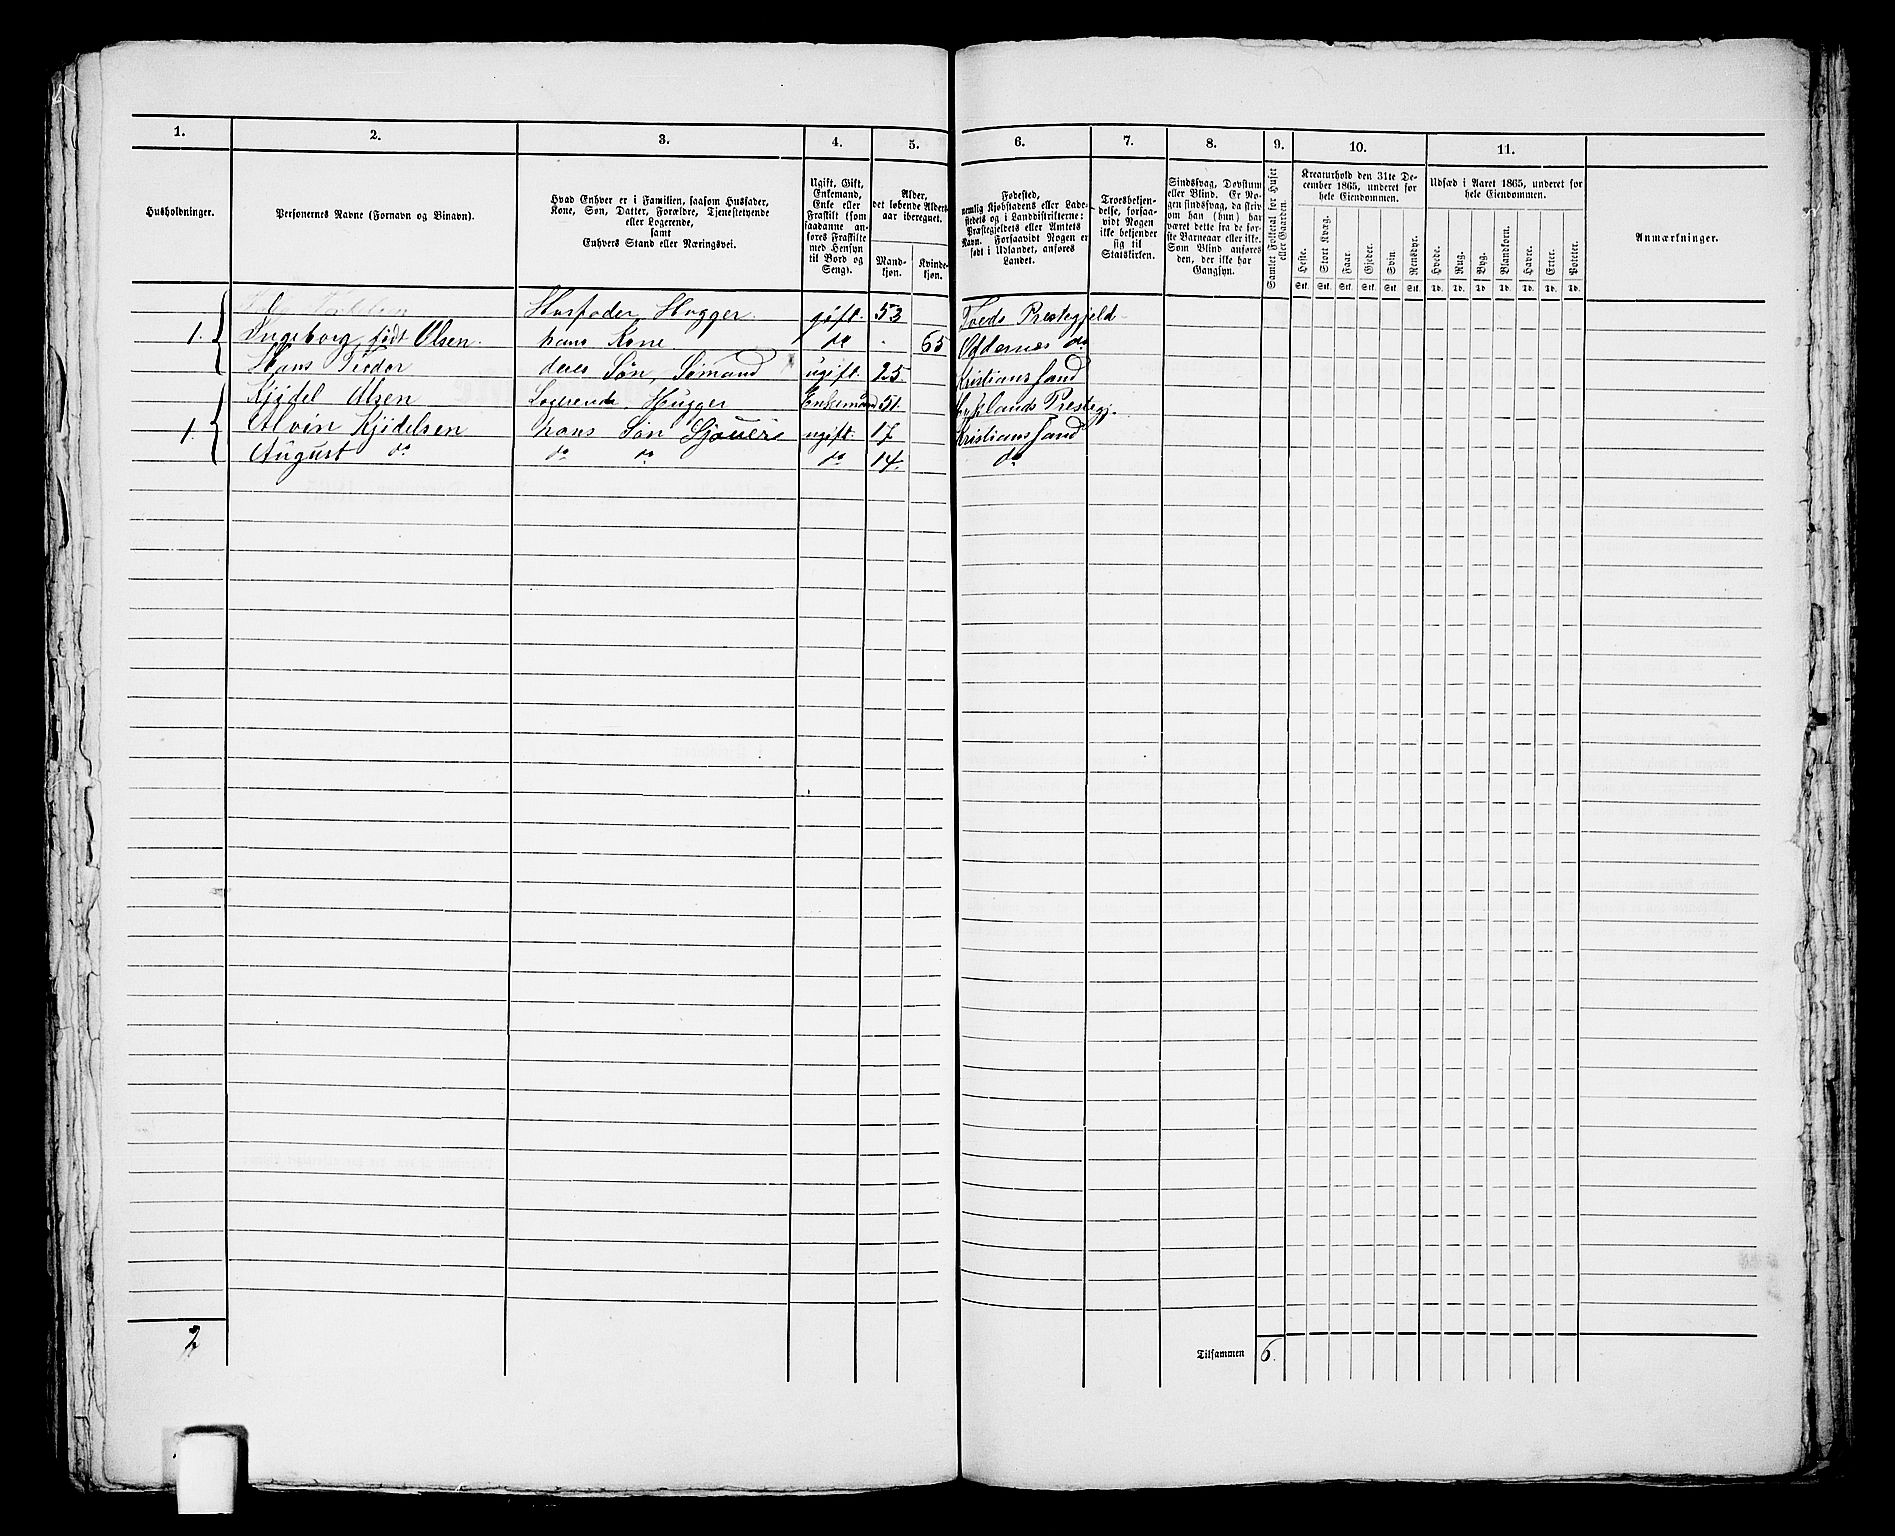 1. 2. 3. 4. 5. 6. 7. 8. 9. 10. 11.
Husholdninger.
Personernes Navne (Fornavn og Binavn).
Hvad Enhver er i Familien, saasom Husfader,
Kone, Søn, Datter, Forældre, Tjenestetyende
eller Logerende,
samt
Enhvers Stand eller Næringsvei.
Ugift, Gift,
Enkemand,
Enke eller
Fraskilt (som
saadanne an-
føres Fraskilte
med Hensyn
til Bord og
Seng).
Alder,
det løbende Alders-
aar iberegnet.
Mand-
kjøn.
Kvinde-
kjøn.
Fødested,
nemlig Kjøbstadens eller Lade-
stedets og i Landdistrikterne:
Præstegjeldets eller Amtets
Navn. Forsaavidt Nogen er
født i Udlandet, anføres
Landet.
Troesbekjen-
delse, forsaa-
vidt Nogen
ikke bekjender
sig til
Statskirken.
Sindssvag, Døvstum
eller Blind. Er No-
gen sindssvag, da skriv
om han (hun) har
været dette fra de før-
ste Barneaar eller ikke.
Som Blind anføres
den, der ikke har
Gangsyn.
Samlet Folketal for Huset
eller Gaarden.
Kreaturhold den 31te De-
cember 1865, underet for
hele Eiendommen.
Heste. Stort Kvæg. Faar. Gjeder. Svin Rensdyr.
Stk. Stk. Stk. Stk. Stk. Stk.
Udsæd i Aaret 1865, underet for
hele Eiendommen.
Hvede. Rug. Byg. Blandkorn. Havre. Erter. Poteter.
Td. Td. Td. Td. Td. Td. Td.
Anmærkninger.
Husfader Hugger. gift. 53 Tveds Prestegjeld
1. Ingeborg født Olsen. hans Kone. do - 65 Oddernes do
Hans Tiodor deres Søn, Sømand ugift. 25. Kristianssand
Kjidel Olsen Logerende Hugger Enkemand 51. Prestegj.
1. Alvin Kjidelsen hans Søn Sjouer ugift. 17 Kristianssand
August do do do do 14. do
2
Tilsammen 6.